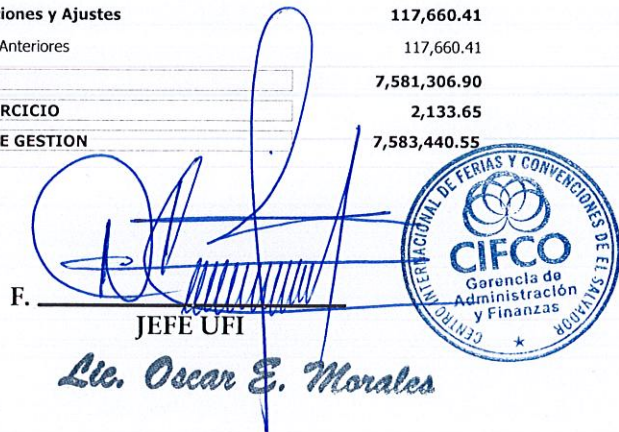 ciones y Ajustes 117,660.41
Anteriores 117,660.41
7,581,306.90
RCICIO 2,133.65
E GESTION 7,583,440.55
F.
JEFE UFI
Lic. Oscar E. Morales
CENTRO INTERNACIONAL DE FERIAS Y CONVENCIONES DE EL SALVADOR
CIFCO
Gerencia de
Administración
y Finanzas